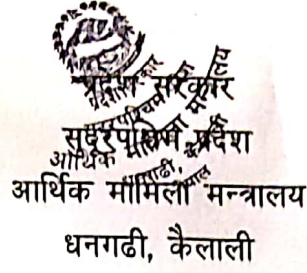 प्रदेश सरकार
सुदूरपश्चिम प्रदेश
आर्थिक मामिला मन्त्रालय
धनगढी, कैलाली